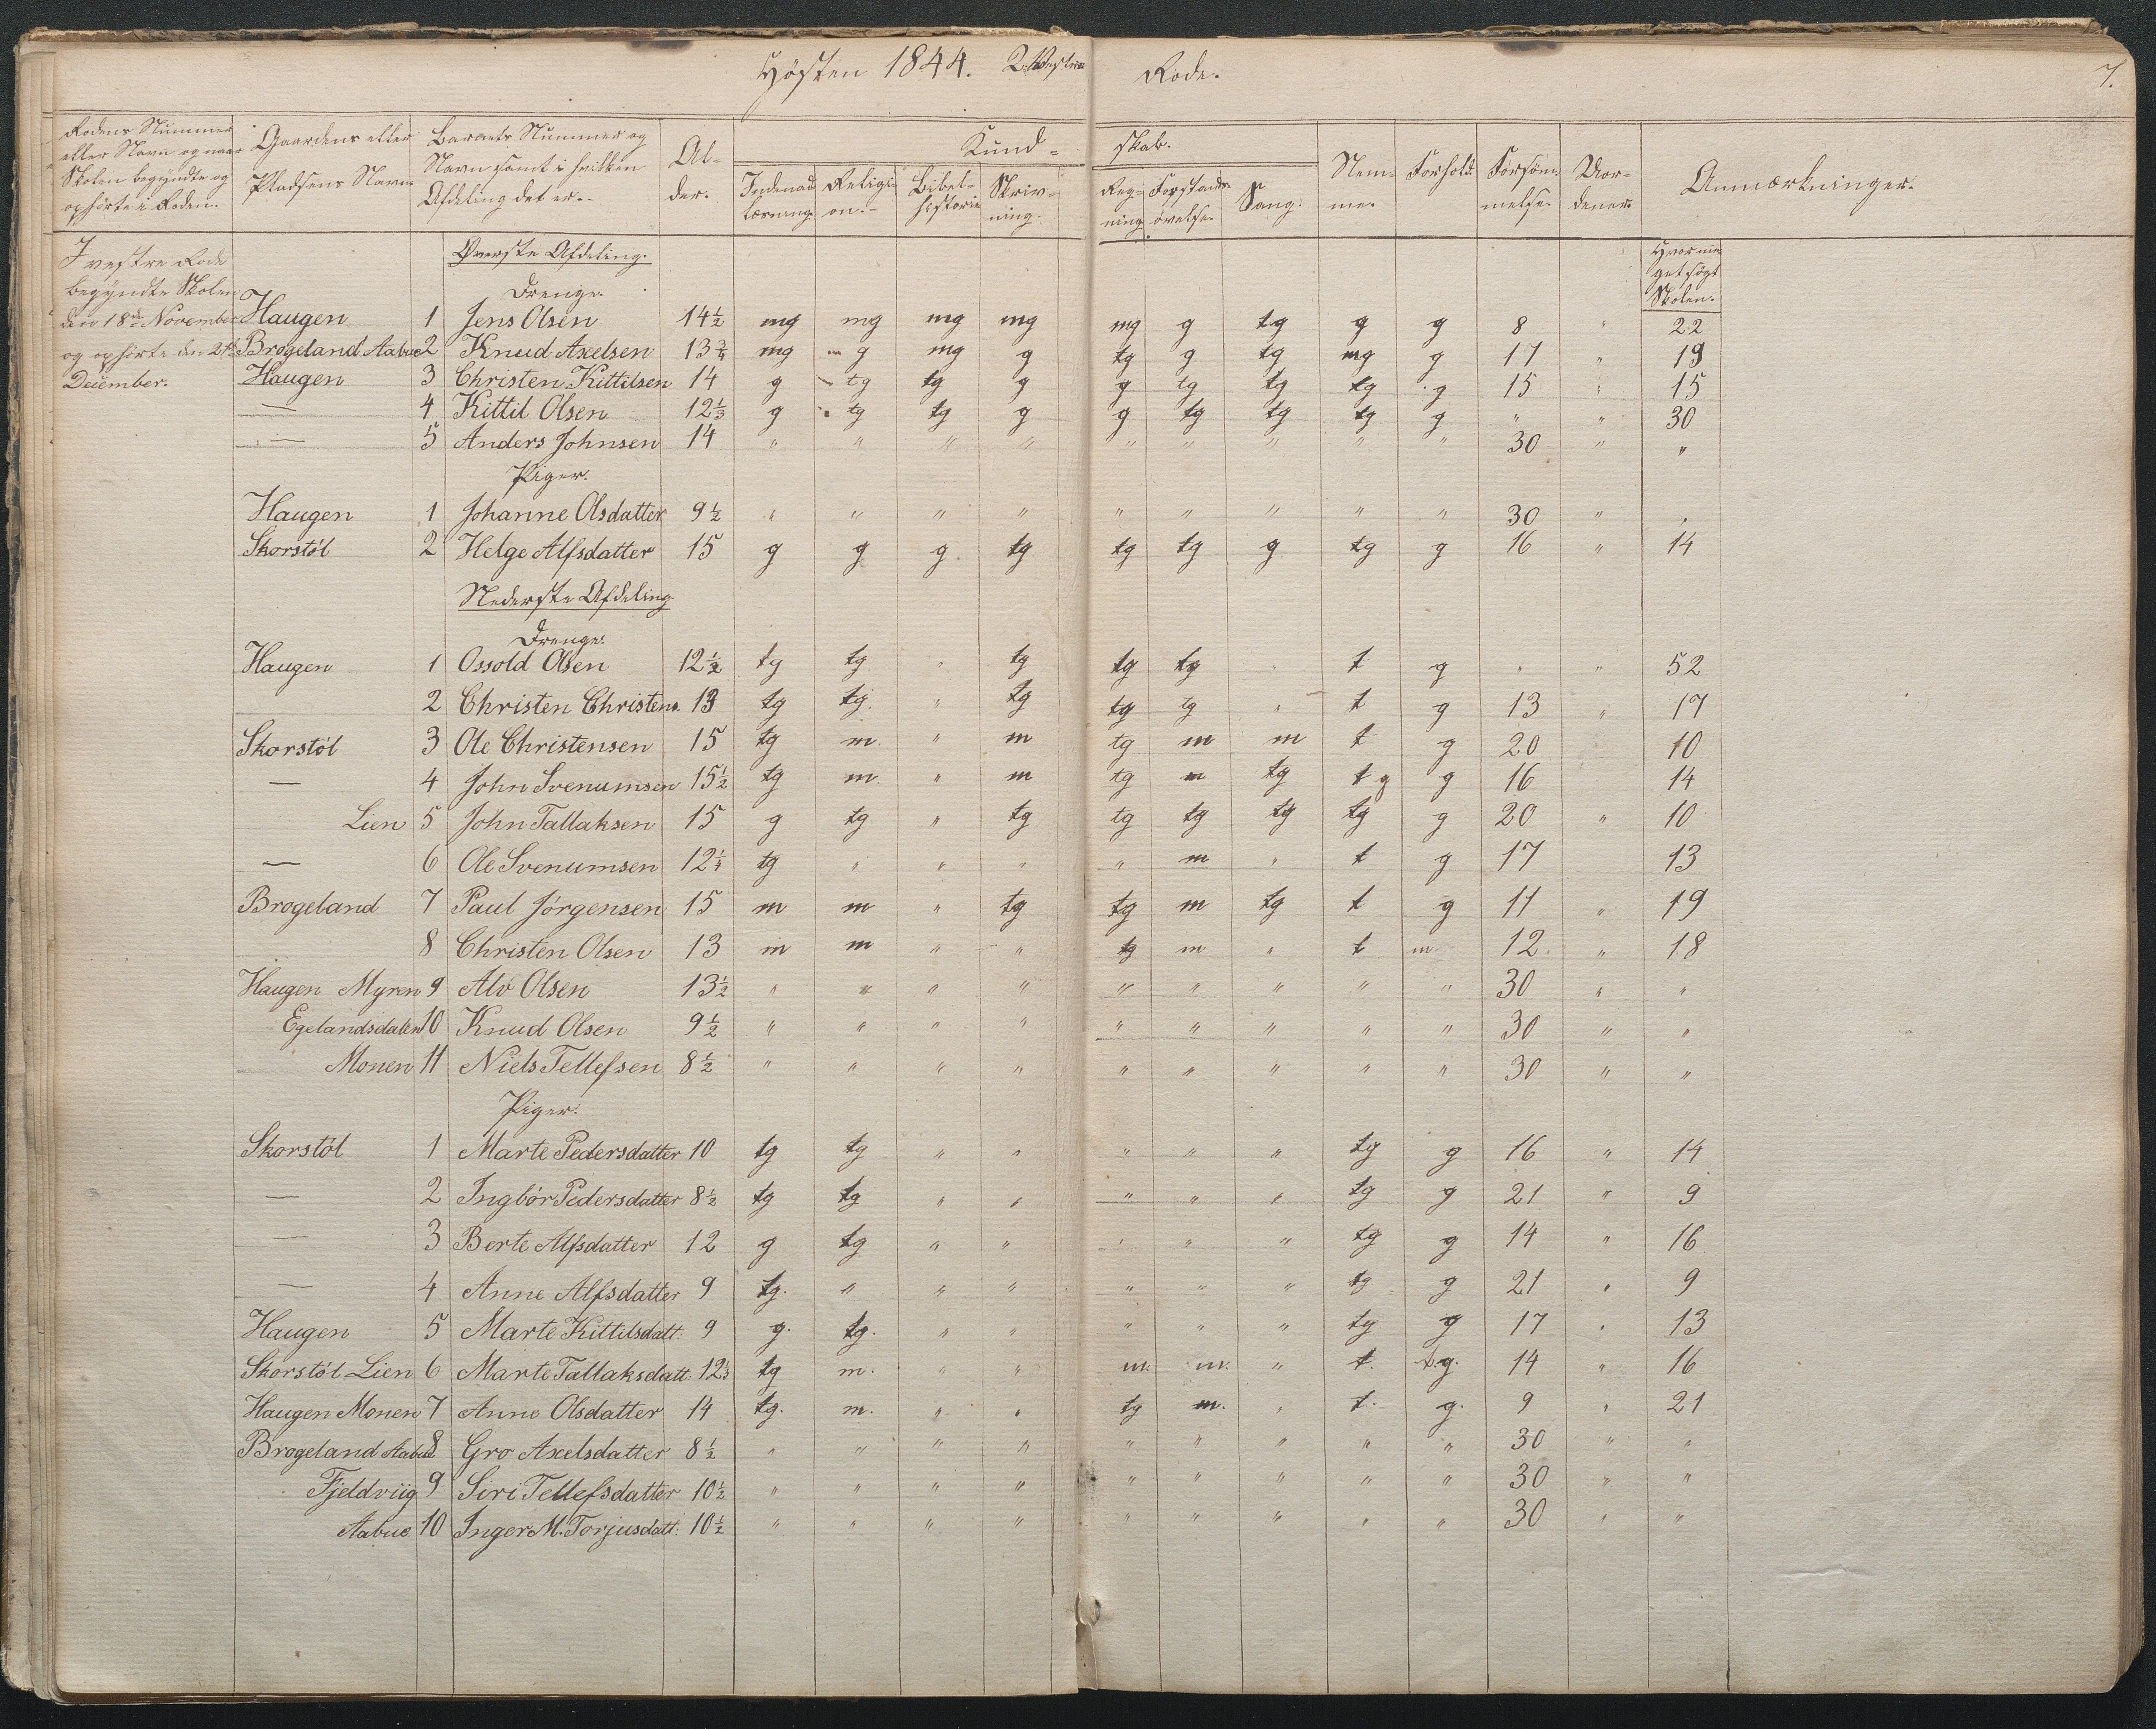 Høsten 1844. 2. Vestre Rode.
7.
Rodens Nummer eller Navn og naar Skolen begyndte og ophørte i Roden.
Gaardens eller Pladsens Navn
Barnets Nummer og Navn samt i hvilken Afdeling det er.
Alder.
Kundskab.
Indenad læsning.
Religion.
Bibelhistorie
Skrivning.
Regning
Forstands øvelse.
Sang.
Nemme.
Forhold.
Forsømmelse.
Anmærkninger.
I vestre Rode
begyndte Skolen
den 18de November
og ophørte den 21de
December.
Hvor meget søgt Skolen.
Øverste Afdeling.
Drenge.
Haugen 1 Jens Olsen 14½ mg mg mg mg mg g tg g g 8 " 22
Brogeland Aabue 2 Knud Axelsen 13¾ mg g mg g tg g tg mg g 17 " 13
Haugen 3 Christen Kittilsen 14 g tg tg g g tg tg tg g 15 " 15
— 4 Kittil Olsen 12⅓ g tg tg g g tg tg tg g " " 30
— 5 Anders Johnsen 14 " " " " " " " " " 30 " "
Piger.
Haugen 1 Johanne Olsdatter 9½ " " " " " " " " " 30 " "
Skorstöl 2 Helge Alfsdatter 15 g g g tg tg tg g tg g 16 " 14
Nederste Afdeling
Drenge.
Haugen 1 Ossold Olsen 12½ tg tg " tg tg tg " t g " " 52
2 Christen Christens. 13 tg tg. " tg tg tg " t g 13 " 17
Skorstöl 3 Ole Christensen 15 tg m. " m tg m m t g 20 10
— 4 John Svenumsen 15½ tg m. " m tg m tg tg g 16 14
Lien 5 John Tallaksen 15 g tg " tg tg tg tg tg g 20 " 10
— 6 Ole Svenumsen 12¼ tg " " " " m " t g 17 13
Brogeland 7 Paul Jörgensen 15 m m " tg tg m tg t g 11 " 19
8 Christen Olsen 13 m m " " tg m " t m 12. " 18
Haugen Myren 9 Alv Olsen 13½ " " " " " " " " " 30 " "
Egelandsdalen 10 Knud Olsen 9½ " " " " " " " " " 30 " "
Monen 11 Niels Tellefsen 8½ " " " " " " " " " 30 " "
Piger.
Skorstöl 1 Marte Pedersdatter 10 tg tg " " " " " tg g 16 " 14
— 2 Ingbör Pedersdatter 8½ tg tg " " " " " tg g 21 " 9
— 3 Berte Alfsdatter 12 g tg " " " " " tg g 14 " 16
— 4 Anne Alfsdatter 9 tg. " " " " " " tg g 21 " 9
Haugen 5 Marte Kittilsdatt. 9 g. tg. " " " " " tg g 17 " 13
Skorstöl Lien 6 Marte Tallaksdatt. tg m. " " m. m. " t. t.g. 14 " 16
Haugen Monen 7 Anne Olsdatter 14 tg. m. " " tg m. " t. g. 9 " 21
Brogeland Aabue 8 Gro Axelsdatter 8½ " " " " " " " " " 30 " "
Fjeldviig 9 Siri Tellefsdatter 10½ " " " " " " " " " 30 " "
Aabue 10 Inger M. Torjusdatt. 10½ " " " " " " " " " 30 " "